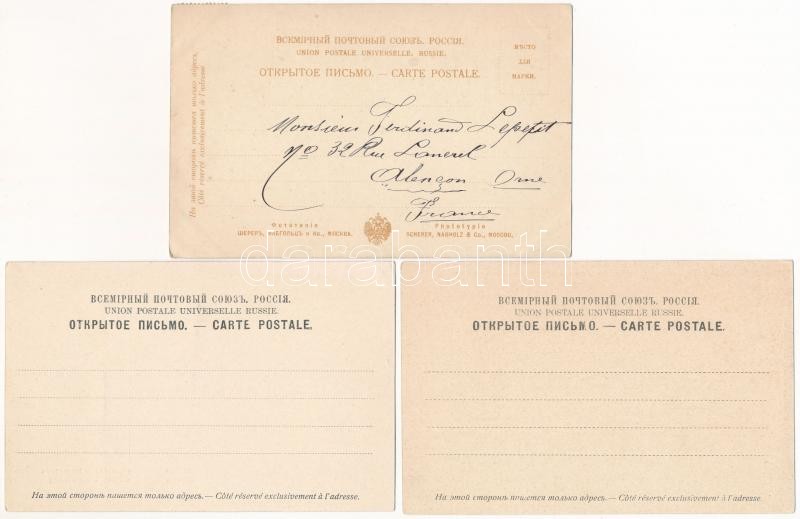 ВСЕМІРНЫЙ ПОЧТОВЫЙ СОЮЗЪ. РОССІЯ.
UNION POSTALE UNIVERSELLE. RUSSIE.
ОТКРЫТОЕ ПИСЬМО. — CARTE POSTALE.
МѢСТО
ДЛЯ
МАРКИ.
На этой сторонѣ пишется только адресъ.
Côté réservé exclusivement à l'adresse
Monsieur Ferdinand Lepetit
No 32 Rue
Alençon Orne
France
Фототипія
ШЕРЕРЪ, НАБГОЛЬЦЪ и Ко., МОСКВА.
Phototypie
SCHERER, NABHOLZ & Co., MOSCOU.
darabanth
ВСЕМІРНЫЙ ПОЧТОВЫЙ СОЮЗЪ. РОССІЯ.
UNION POSTALE UNIVERSELLE RUSSIE.
ОТКРЫТОЕ ПИСЬМО. — CARTE POSTALE.
На этой сторонѣ пишется только адресъ. — Côté réservé exclusivement à l'adresse.
ВСЕМІРНЫЙ ПОЧТОВЫЙ СОЮЗЪ. РОССІЯ.
UNION POSTALE UNIVERSELLE RUSSIE.
ОТКРЫТОЕ ПИСЬМО. — CARTE POSTALE.
На этой сторонѣ пишется только адресъ. — Côté réservé exclusivement à l'adresse.